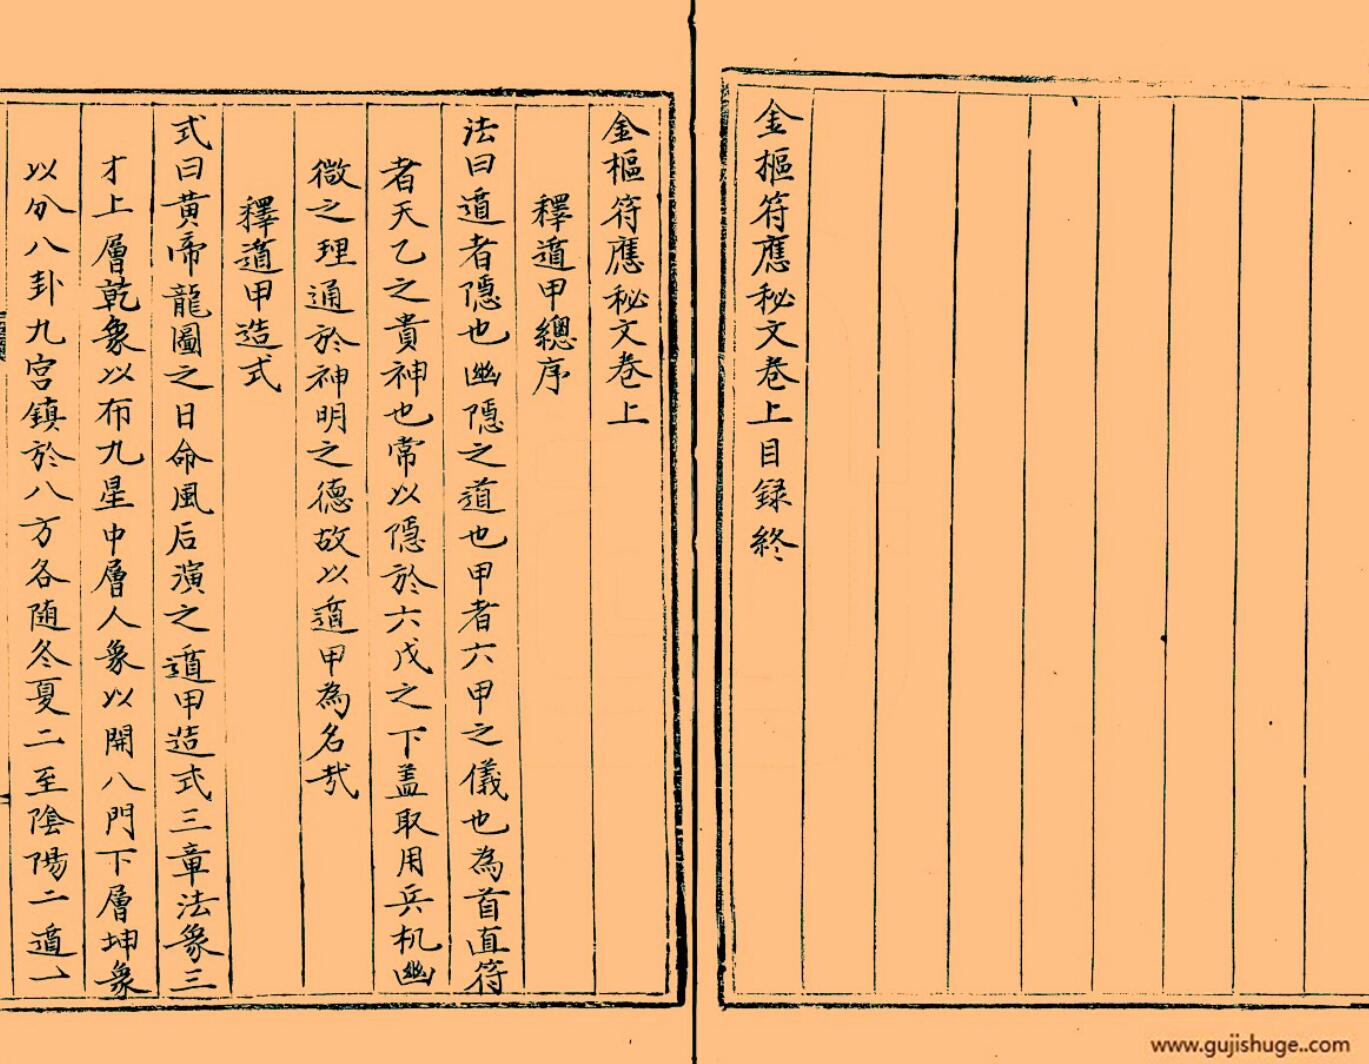 金樞符應秘文卷上目録終
金樞符應秘文卷上
釋遁甲總序
法曰遁者隱也幽隱之道也甲者六甲之儀也為首直符
者天乙之貴神也常以隱於六戊之下盖取用兵机幽
微之理通於神明之德故以遁甲為名㢤
釋遁甲造式
式曰黄帝龍圖之日命風后演之遁甲造式三章法象三
才上層乾象以布九星中層人象以開八門下層坤象
以分八卦九宮鎮於八方各随冬夏二至陰陽二遁一
www.gujishuge..com